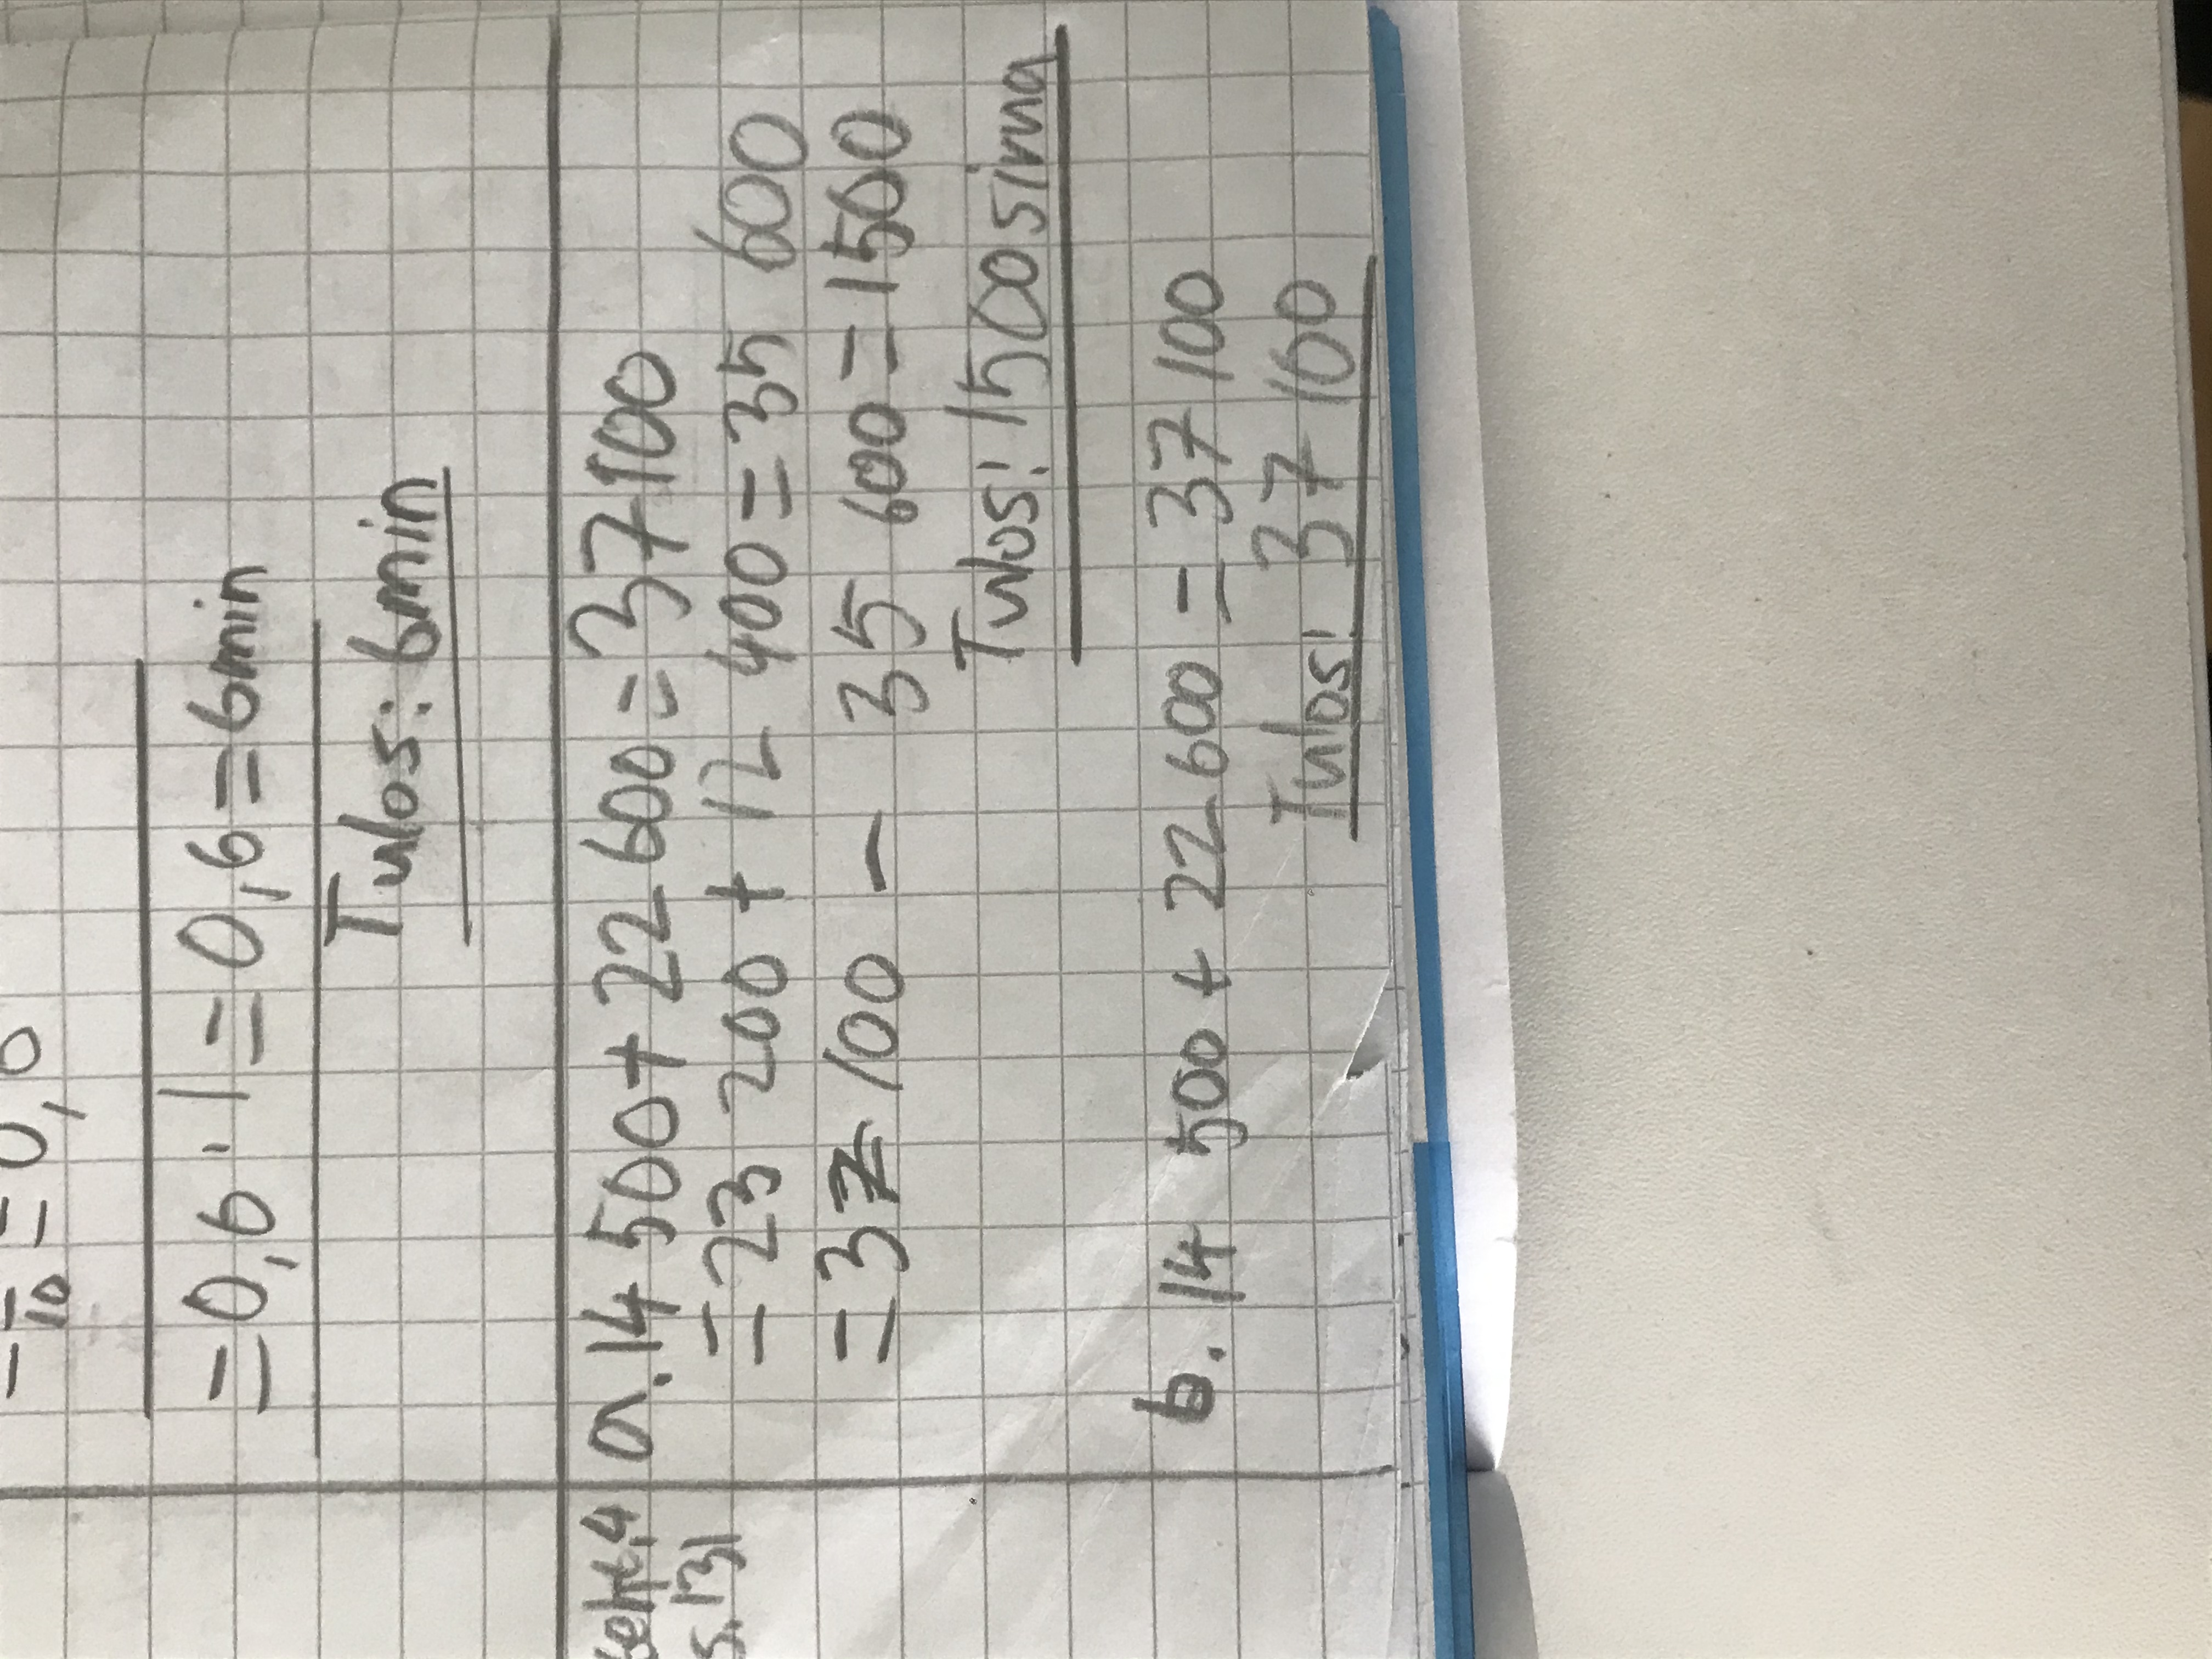 = 10 = 0,6
= 0,6 · 1 = 0,6 = 6min
Tulos: 6min
teht.4 a. 14 500 + 22 600 = 37 100
s.131 = 23 200 + 12 400 = 35 600
= 37 100 - 35 600 = 1500
Tulos: 1500 sirua
b. 14 500 + 22 600 = 37 100
Tulos: 37 100